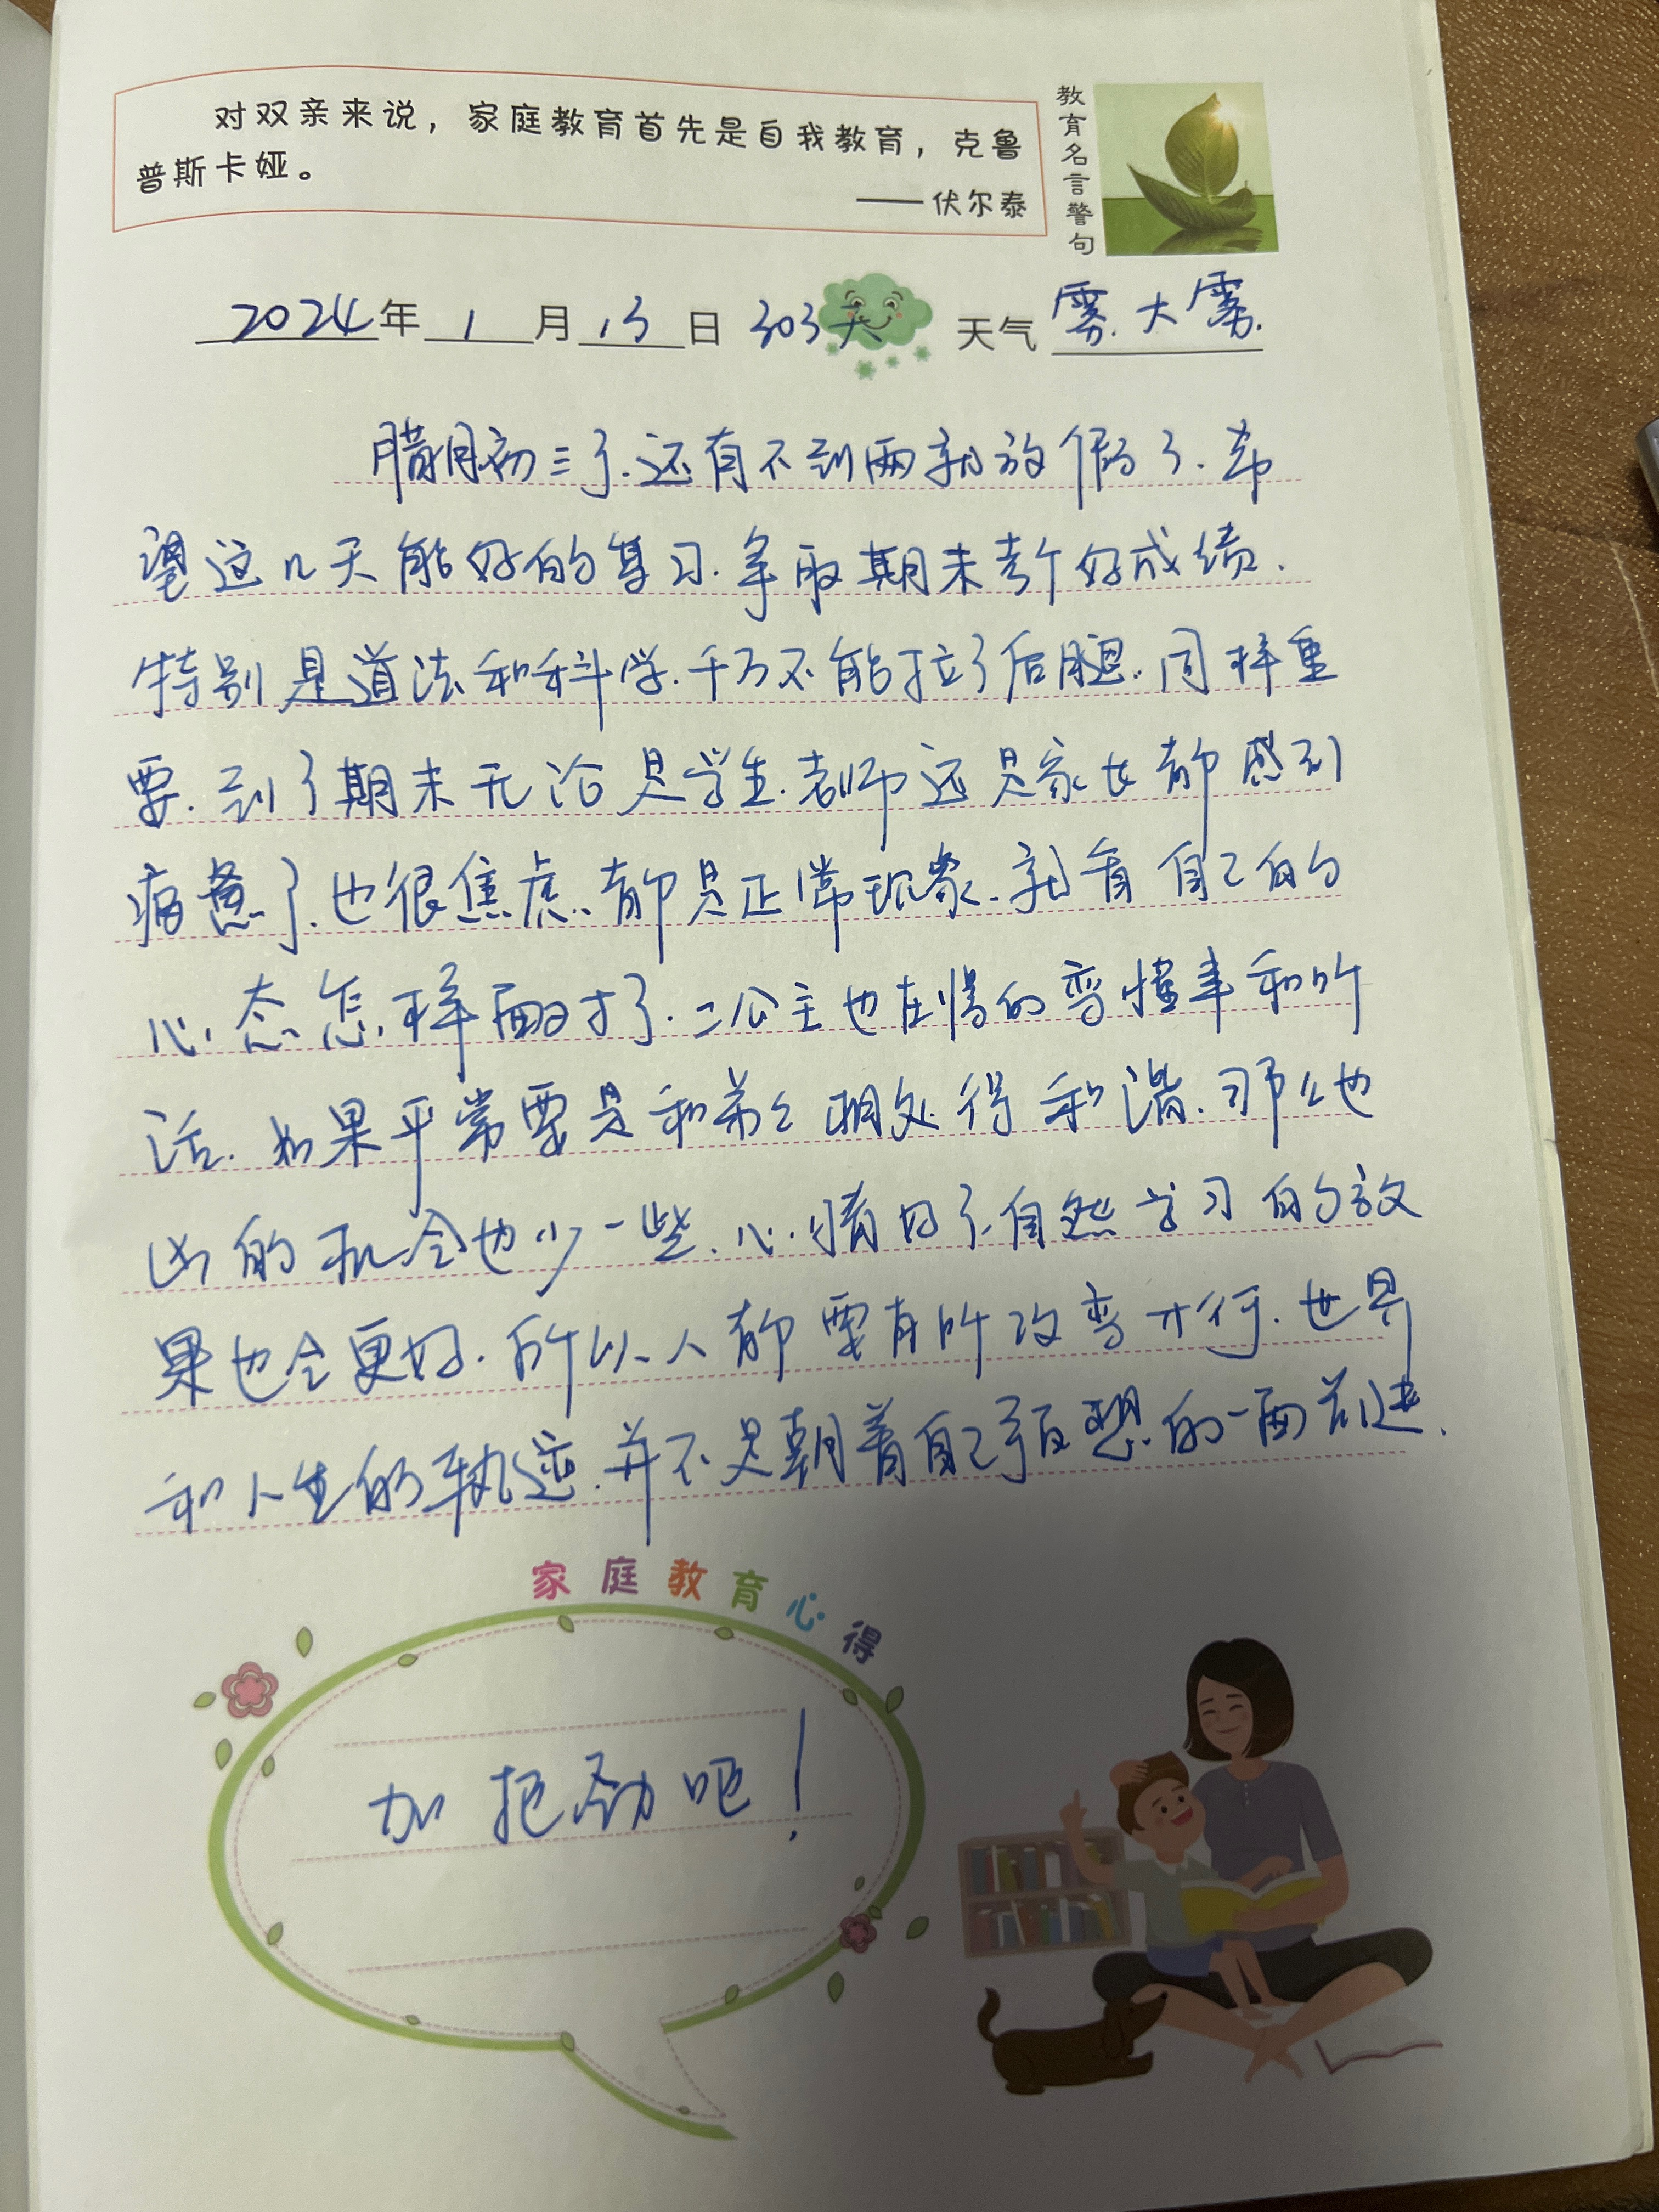 对双亲来说，家庭教育首先是自我教育，克鲁
普斯卡娅。
——伏尔泰
教育名言警句
2024年1月13日 303天 天气 雾.大雾.
腊月初三了.还有不到两就放假了.希
望这几天能好的复习.争取期末考个好成绩.
特别是道法和科学.千万不能拉了后腿.同样重
要.到了期末无论是学生.老师还是家长都感到
疲惫了.也很焦虑.都是正常现象.就看自己的
心态怎样面对了.二公主也在慢的变懂事和听
话.如果平常要是和弟么相处得和谐.那么他
凶的机会也少一些.心情好了.自然学习的效
果也会更好.所以人都要有所改变才行.世界
和人生的轨迹.并不是朝着自己预想的一面前进.
家庭教育心得
加把劲吧！